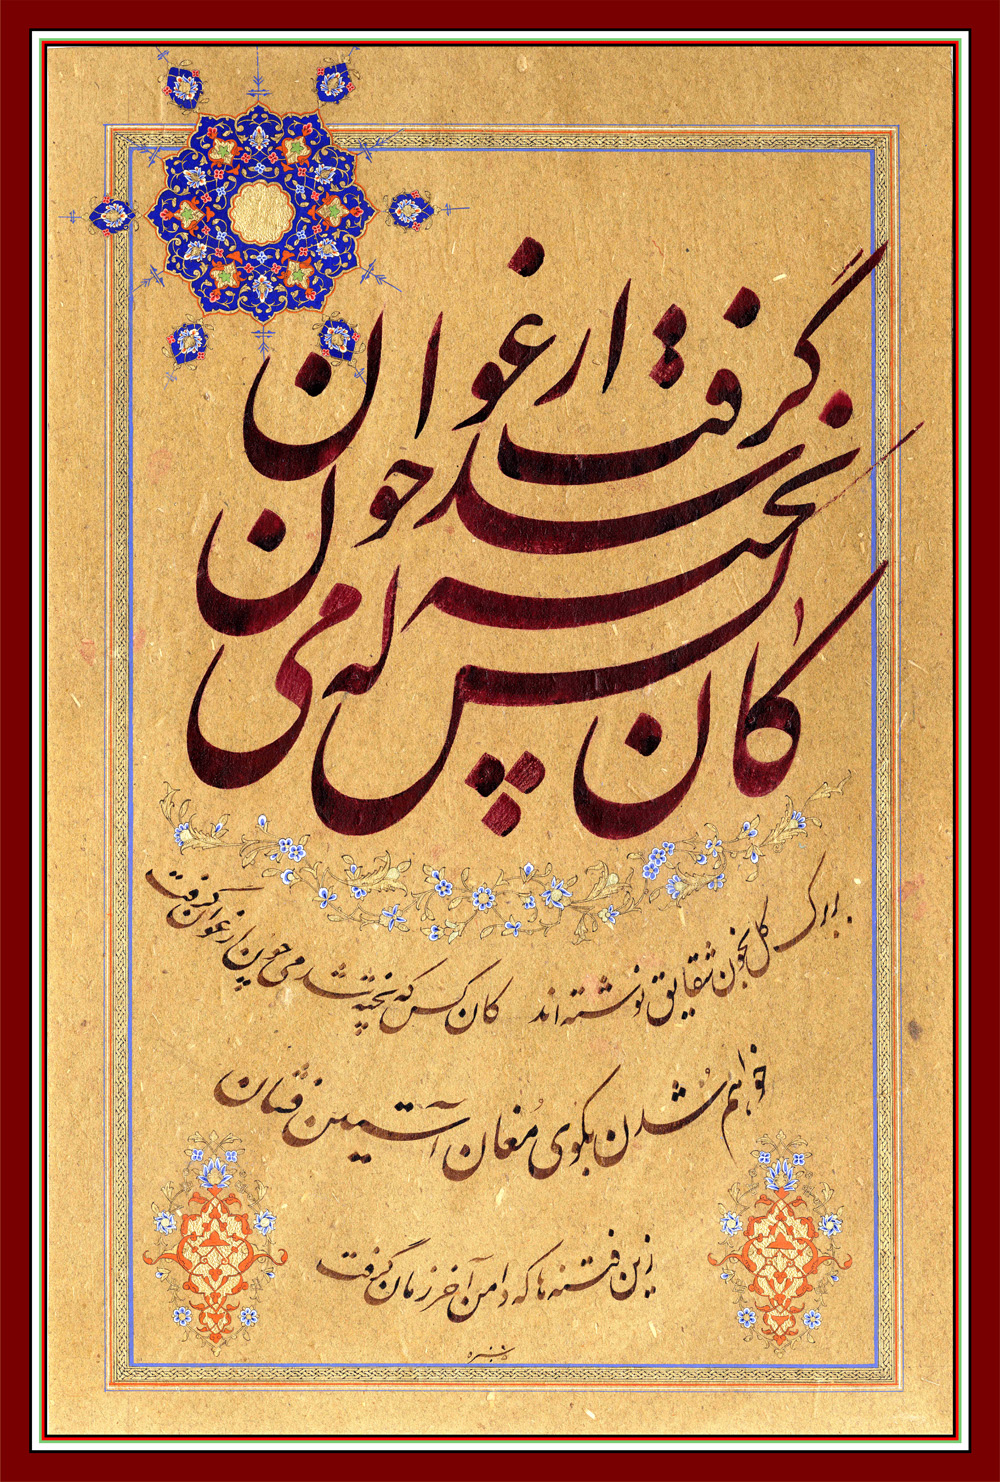 کان کس که پخته شد می چون ارغوان گرفت
بر برگ گل بخون شقایق نوشته‌اند کان کس که پخته شد می چون ارغوان گرفت
خواهم شدن بکوی مُغان آستین فشان
زین فتنه‌ها که دامن آخر زمان گرفت